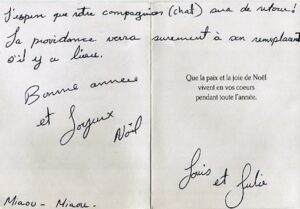 J'espère que votre compagnon (chat) sera de retour!
La providence verra surement à son remplaçant
s'il y a lieu.
Bonne année
et Joyeux
Noël
Miaou - Miaou.
Que la paix et la joie de Noël
vivent en vos coeurs
pendant toute l'année.
Louis et Julie